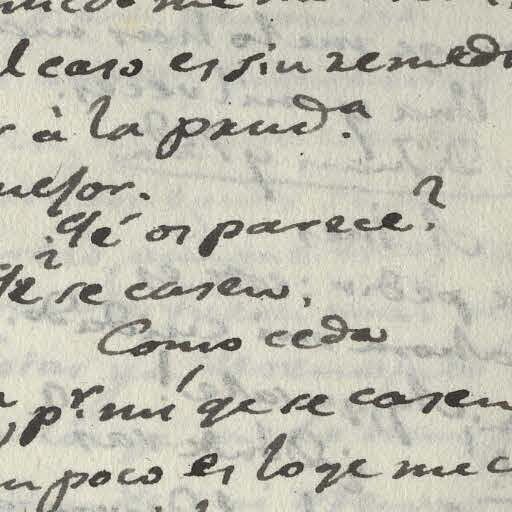 l caso es sin remedi
r à la prud.a
uesor.
Qé os parece?
Qé? se casen,
Como ceda
, pr. mí qe se casen
n poco es lo qe me c